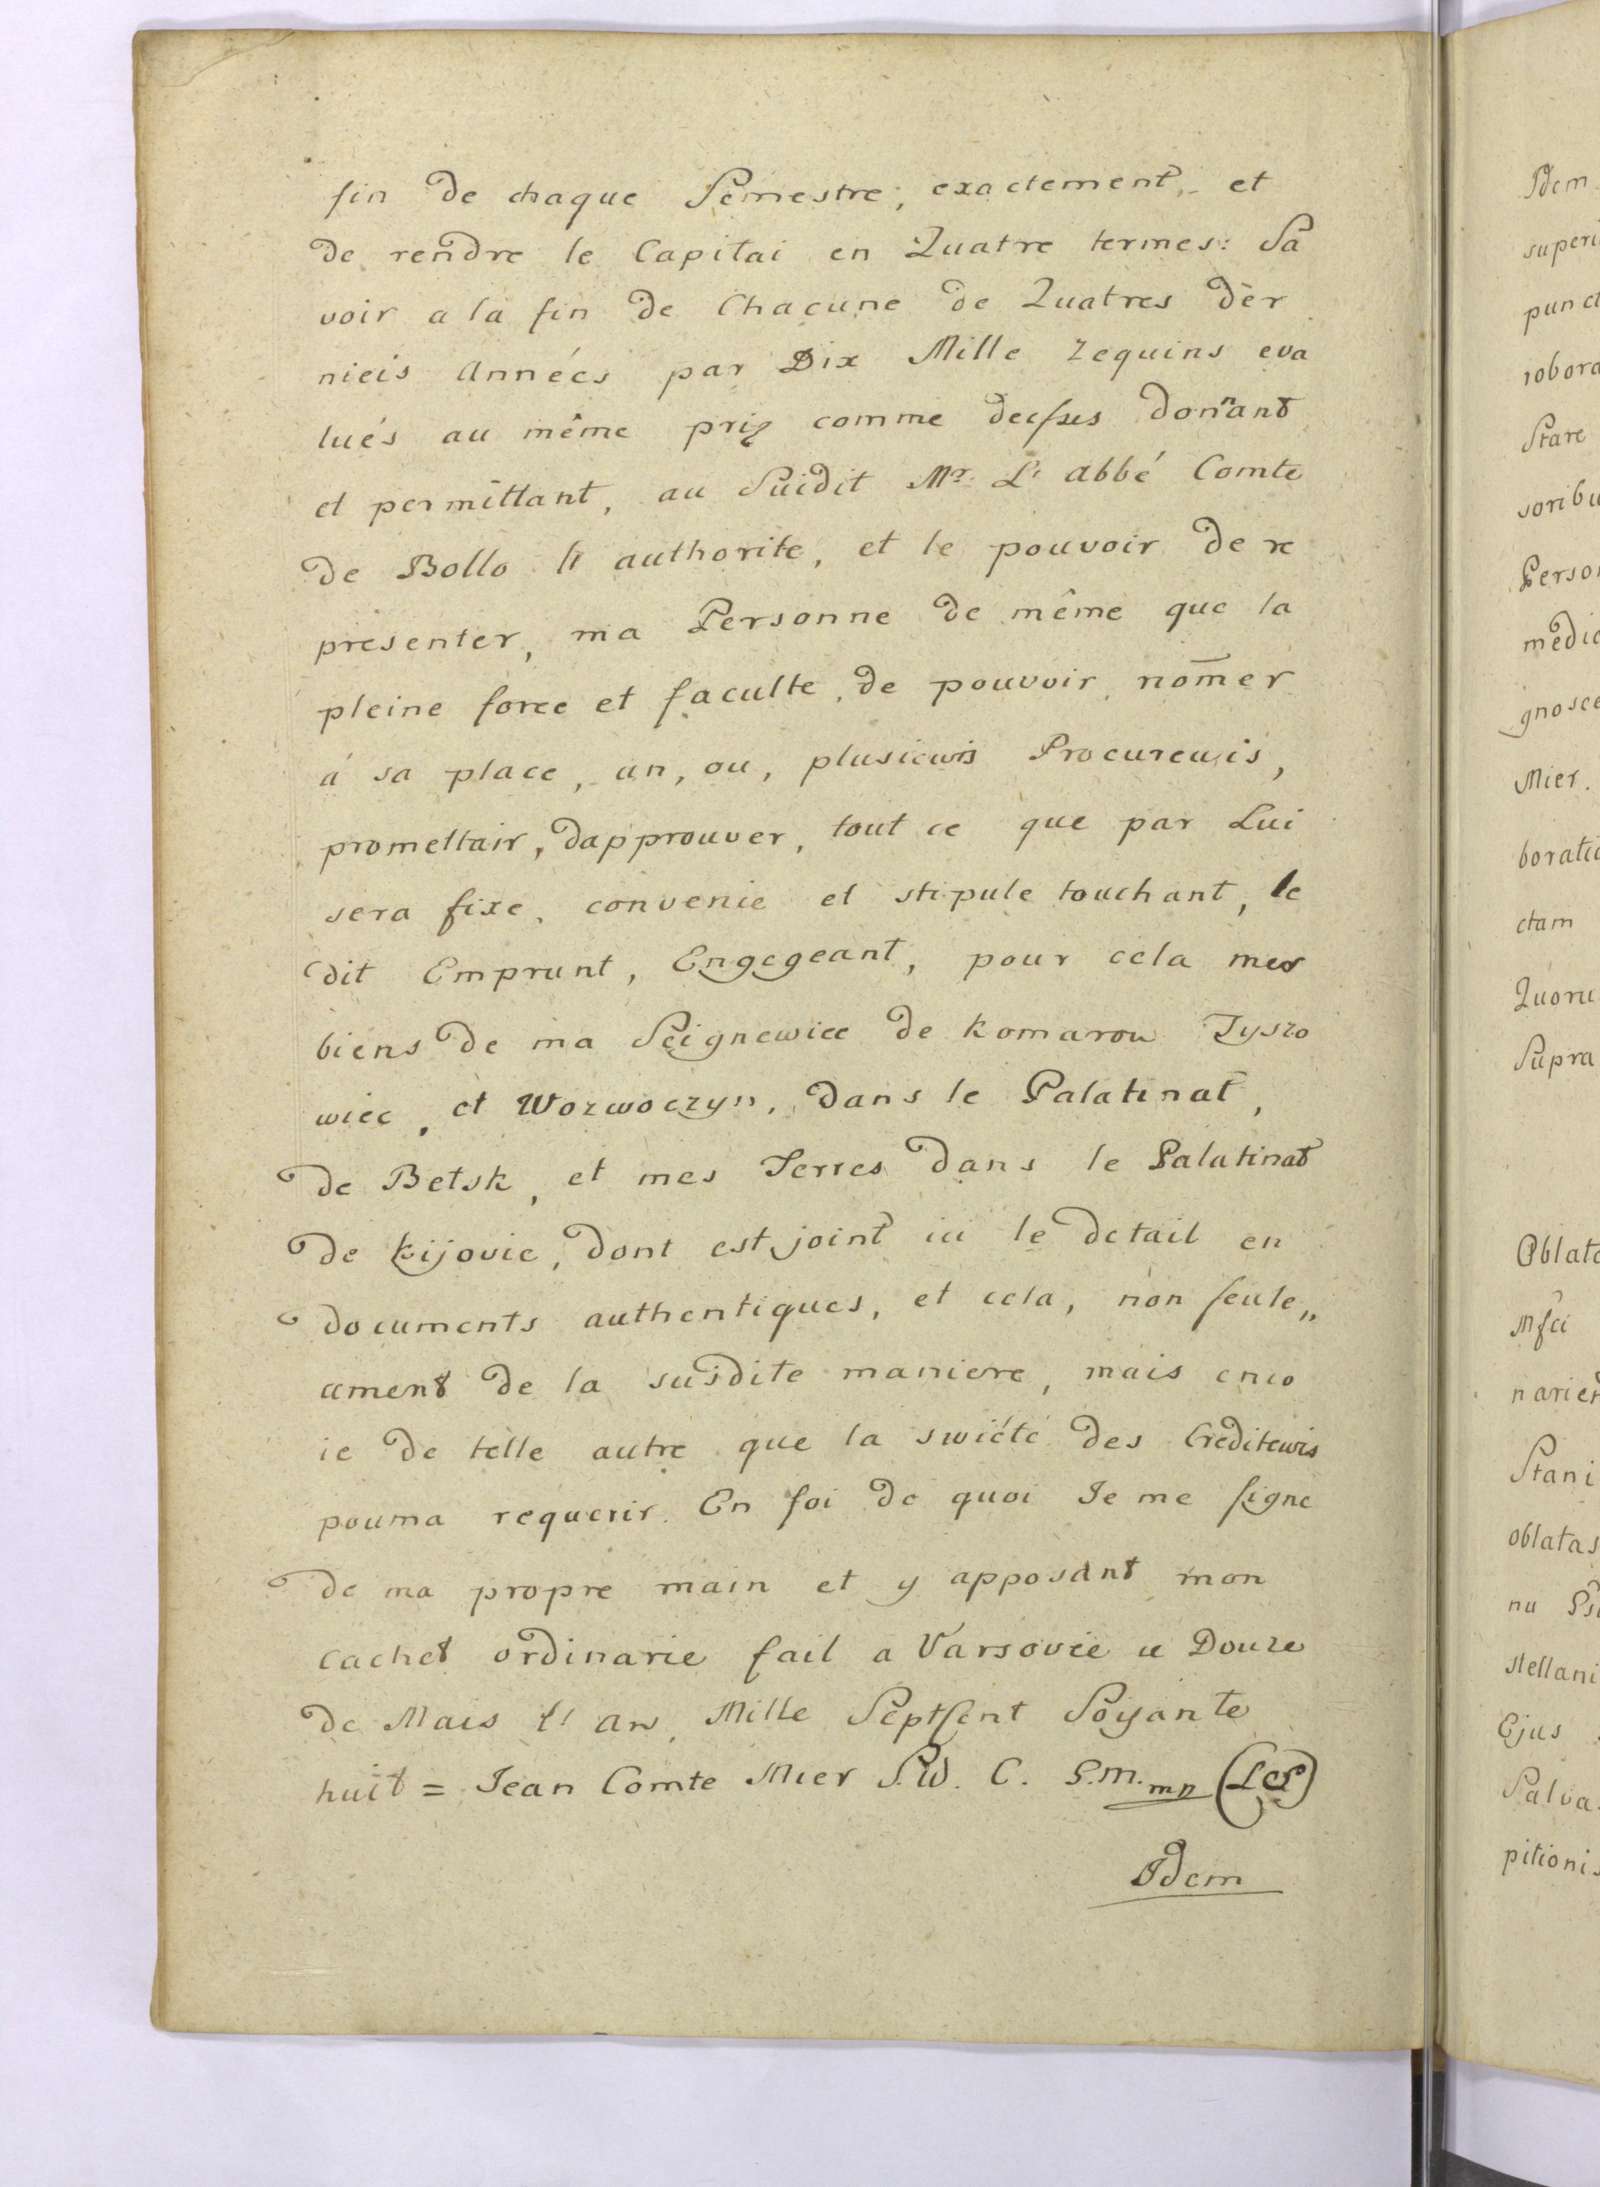 fin de chaque Semestre, exactement, et
de rendre le Capitai en Quatre termes: Sa
voir a la fin de Chacune de Quatres dèr
nieis Années par Dix Mille zequins eva
lués au même prix comme decsus donnant
et permîttant, au Suidit Mr. L' abbé Comte
de Bollo l' authorite, et le pouvoir de re
presenter, ma Personne de même que la
pleine force et faculte, de pouvoir nom̄er
á sa place, un, ou, plusieurs Procureuis,
promettair, dapprouver, tout ce que par Lui
sera fixe, convenie et stipule touchant, le
dit Emprunt, Engegeant, pour cela mes
biens de ma Seignewiee de Komarow Tyszo
wiec, et Wozwoczyn, dans le Palatinat,
de Betsk, et mes Terres dans le Palatinat
de Kijovie, dont est joint ici le detail en
documents authentiques, et cela, non seule„
ament de la susdite maniere, mais enco
ie de telle autre que la swiété des Crediteuis
pouma requerir. En foi de quoi Je me signe
de ma propre main et y apposant mon
cachet ordinarie fail a Varsovie ce Douze
de Mais l' an, Mille Septsent Soyante
huit = Jean Comte Mier S.W. C. S.M. mp (LS)
Idem
Idem
superi
punct
robora
Stare
soribu
Person
medic
gnosce
Mier.
boratio
ctam
Quoru
Supra
Oblata
Mfci
narien
Stani
oblatas
nu
stellani
Ejus
Salva
pitionis